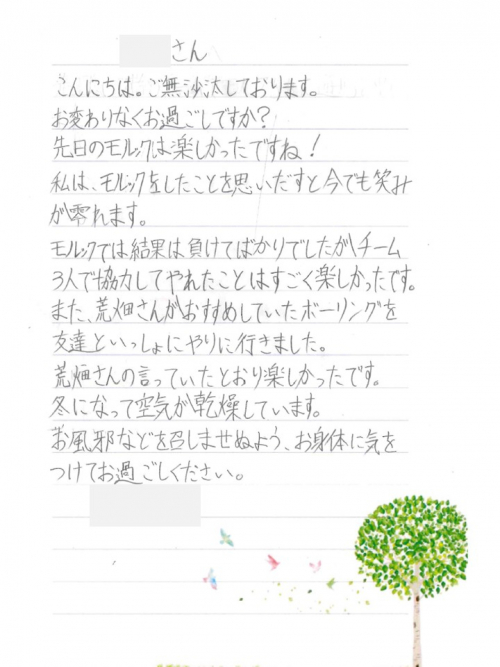 さん
こんにちは。ご無沙汰しております。
お変わりなくお過ごしですか？
先日のモルックは楽しかったですね！
私は、モルックをしたことを思いだすと今でも笑み
が零れます。
モルックでは結果は負けてばかりでしたがチーム
3人で協力してやれたことはすごく楽しかったです。
また、荒畑さんがおすすめしていたボーリングを
友達といっしょにやりに行きました。
荒畑さんの言っていたとおり楽しかったです。
冬になって空気が乾燥しています。
お風邪などを召しませぬよう、お身体に気を
つけてお過ごしください。